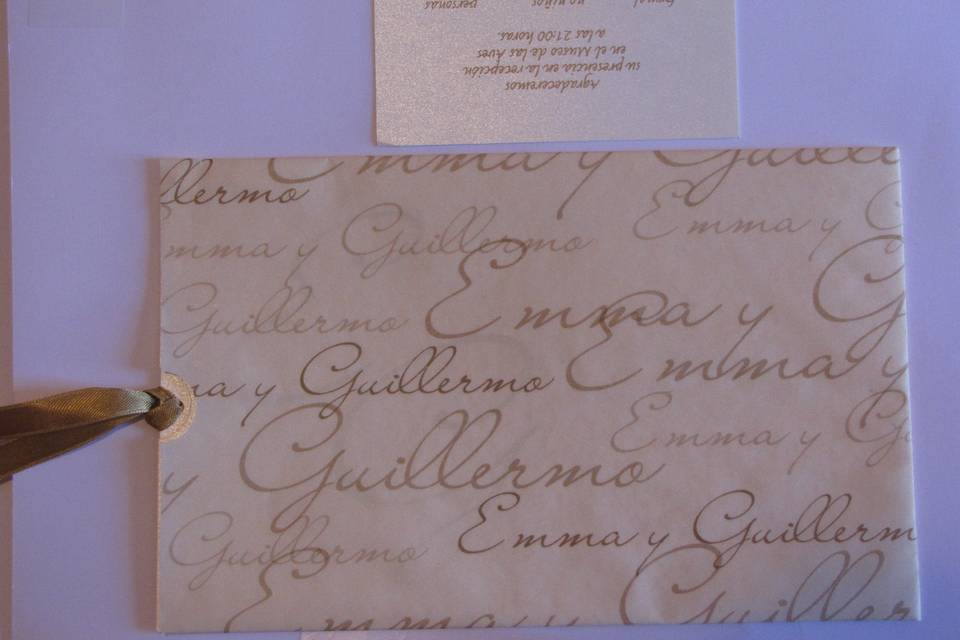 Agradeceremos
su presencia en la recepción
en el Museo de las Aves
a las 21:00 horas.
formal no niños personas
Emma y Guille
llermo
Emma y G
mma y Guillermo
Emma y G
Guillermo
Emma y
ma y Guillermo
Emma y Gu
y Guillermo
Emma y Guillerm
Guillermo
Emma y Guiller